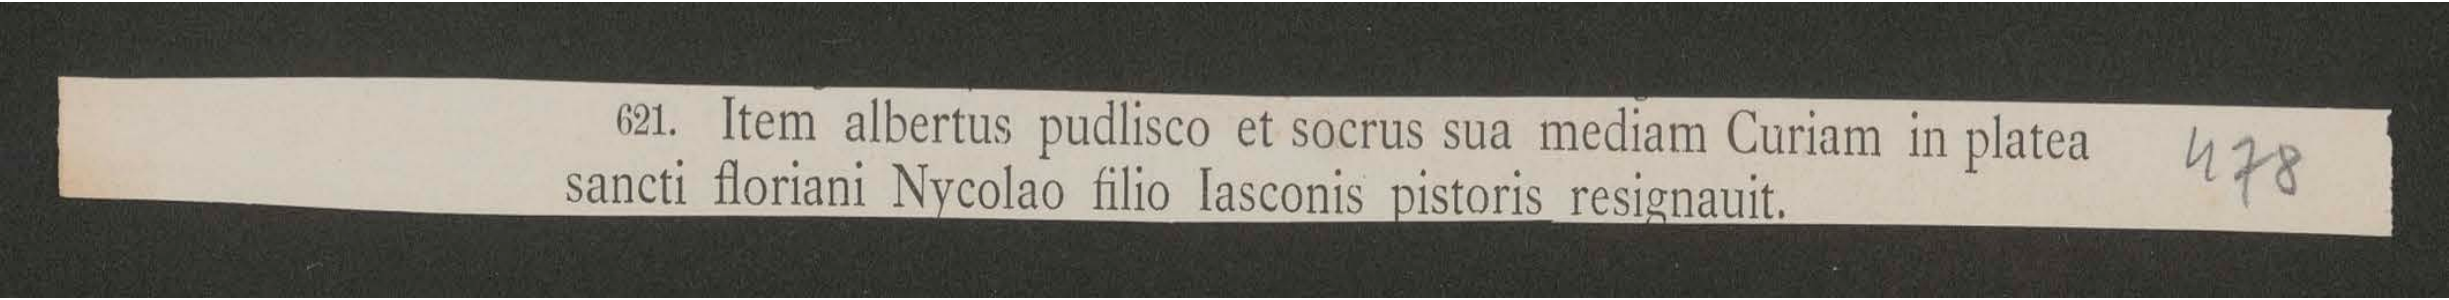 621. Item albertus pudlisco et socrus sua mediam Curiam in platea 478
sancti floriani Nycolao filio Iasconis pistoris resignauit.